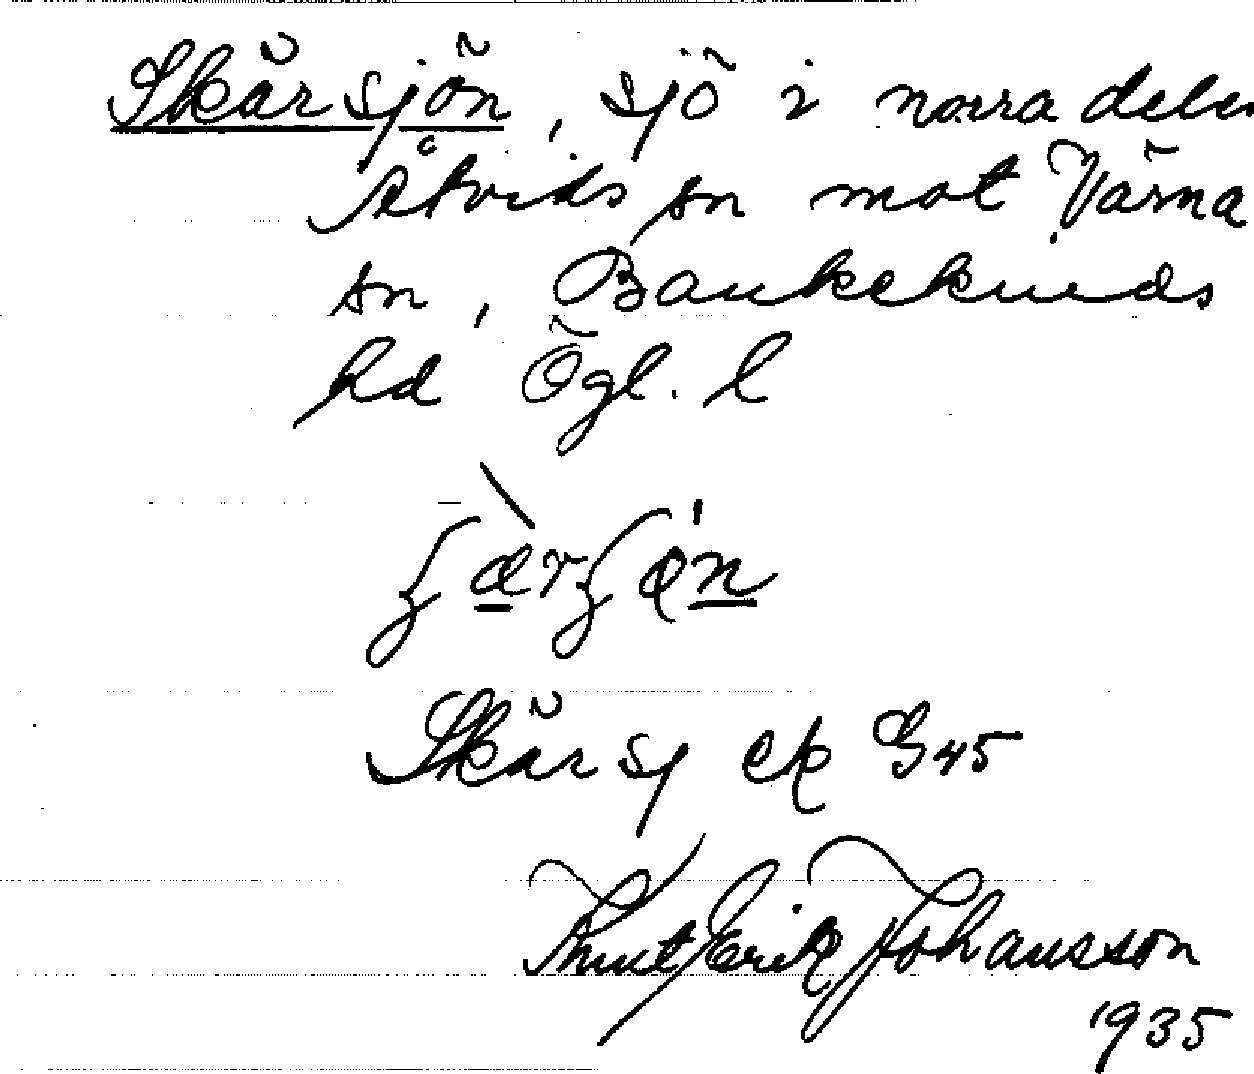 Skärsjön, sjö i norra delen
Åtvids sn mot Värna
sn, Bankekinds
hd Ögl. l
Skärsj ek G45
Knut Erik Johansson
1935